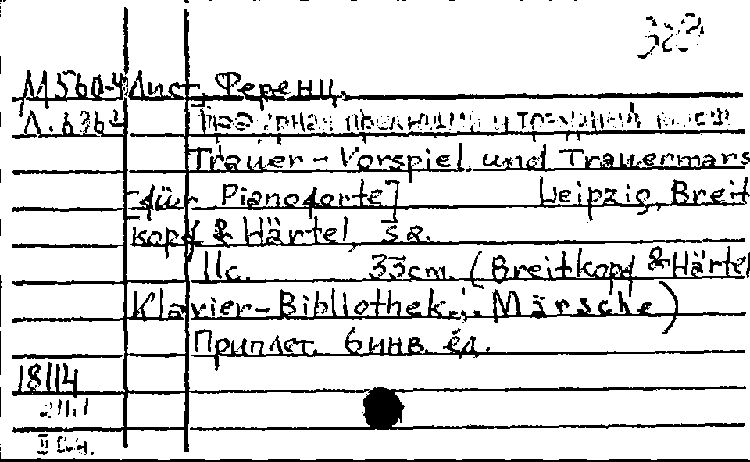 М560-4 Лист, Ференц.
Л.636-2 [Траурная прелюдия и траурный марш
Trauer-Vorspiel und Trauermars
für Pianoforte] Leipzig, Breit
kopf & Härtel, s a.
11c. 33cm. (Breitkopf & Härtel
Klavier-Bibliothek.; Märsche)
Приплет. 6 инв. ед.
18114